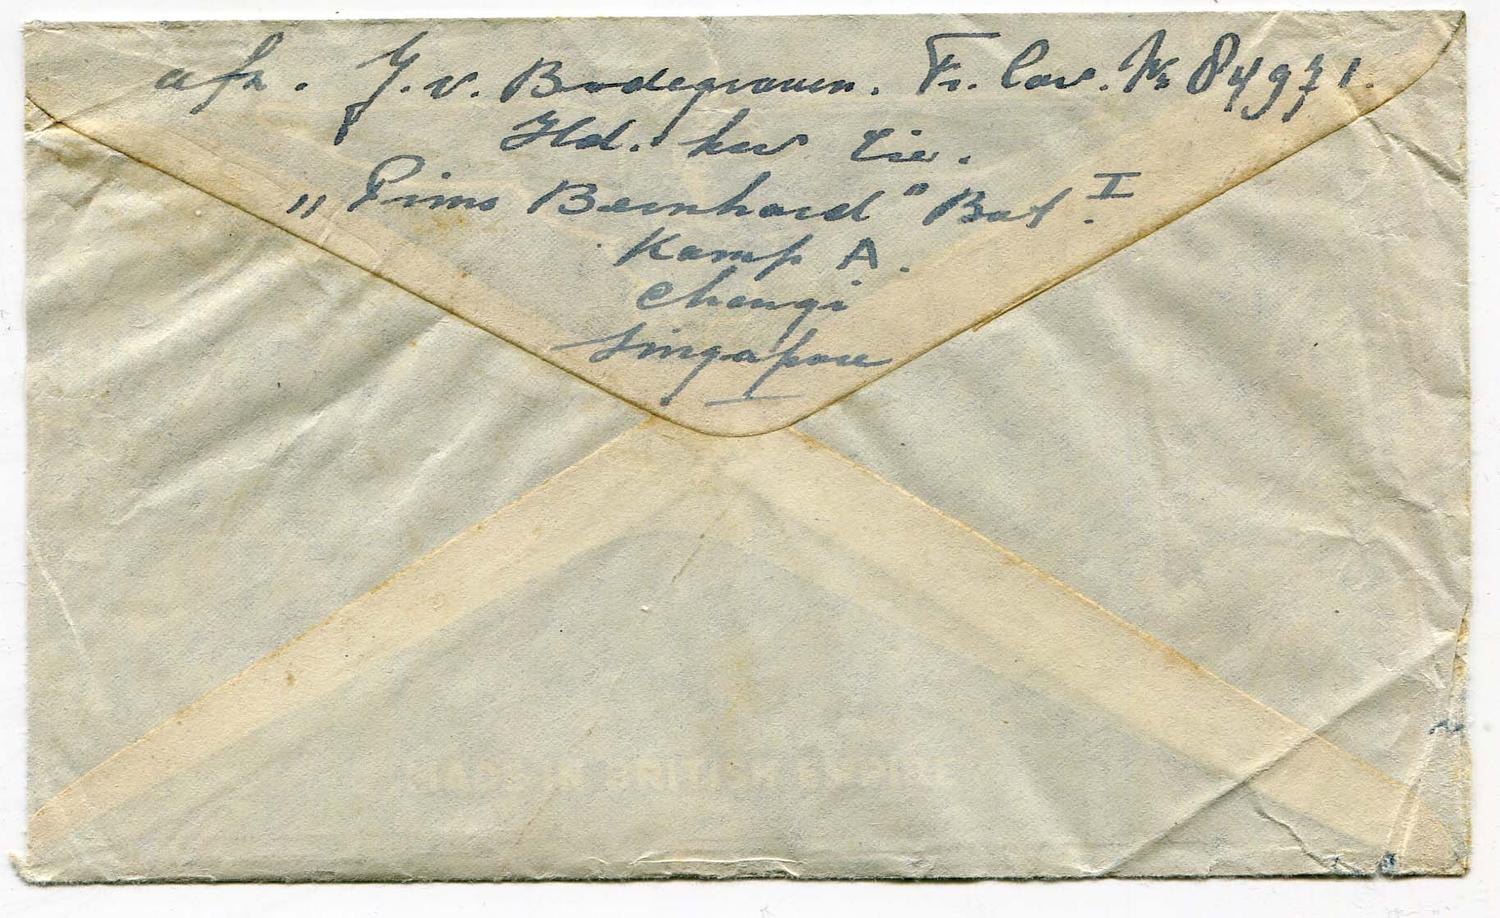 afz. J. v. Bodegraven. Fr. Cav. Nr 84971.
Hd. kw Cie.
„Prins Bernhard" Bat I
Kamp A.
Changi
Singapore
MADE IN BRITISH EMPIRE